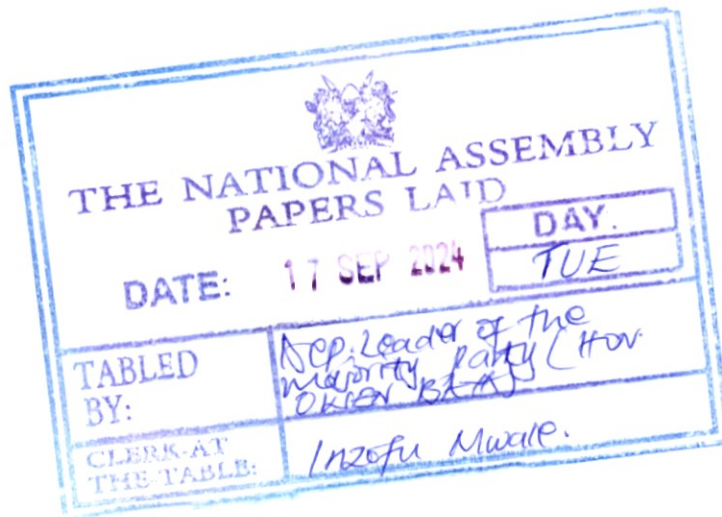 THE NATIONAL ASSEMBLY
PAPERS LAID
DATE: 17 SEP 2024
DAY.
TUE
TABLED BY:
Dep. Leader of the
Majority Party (Hon.
CLERK-AT
THE-TABLE:
Inzofu Mwale.